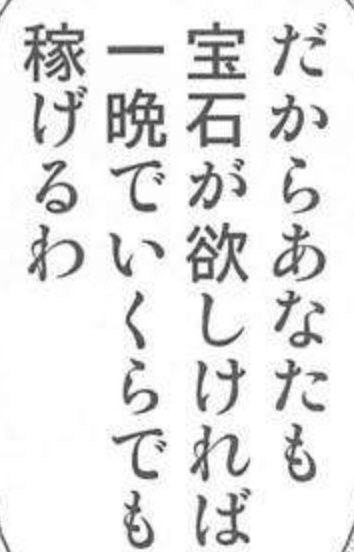 だからあなたも
宝石が欲しければ
一晩でいくらでも
稼げるわ